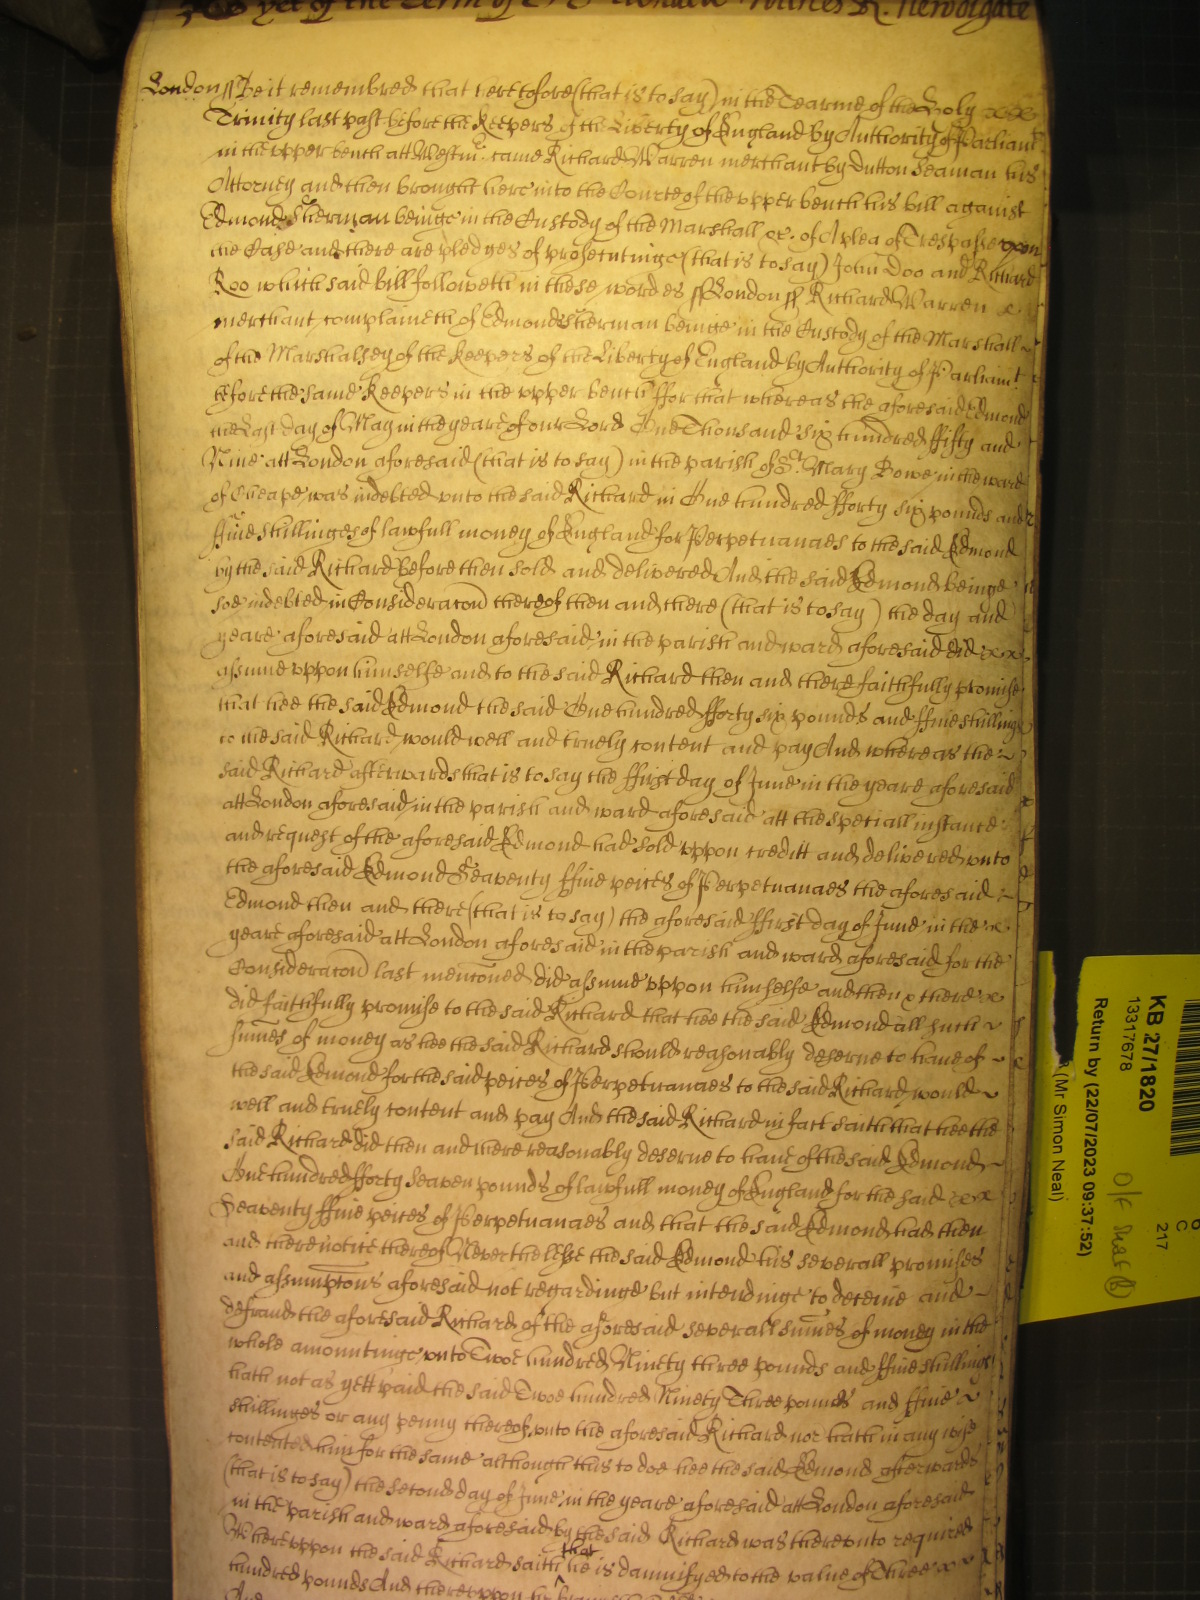 yet of the Term of London Witnes R. Newdigate
London ss Be it remembred that heretofore (that is to say) in the Tearme of the Holy
Trinity last past before the Keepers of the Liberty of England by Authority of Parliamt
in the vpper bench att Westm̃ came Richard Warren merchant by Dutton Seaman his
Attorney and then brought here into the Courte of the vpper bench his bill against
Edmond Sherman beinge in the Custody of the Marshall &c. of A plea of Trespasse vpon
the Case and there are pledges of prosecutinge (that is to say) John Doo and Richard
Roo which said bill followeth in these wordes ss London ss Richard Warren
merchant complaineth of Edmond Sherman beinge in the Custody of the Marshall
of the Marshalsey of the Keepers of the Liberty of England by Authority of Parliamt
before the same Keepers in the vpper bench ffor that whereas the aforesaid Edmond
the Last day of May in the yeare of our Lord One Thousand six hundred ffifty and
Nine att London aforesaid (that is to say) in the parish of St. Mary Bowe in the ward
of Cheape was indebted vnto the said Richard in One hundred fforty six pounds and
ffiue shillinges of lawfull money of England for Perpetuanaes to the said Edmond
by the said Richard before then sold and delivered And the said Edmond beinge
soe indebted in Consideracon thereof then and there (that is to say) the day and
yeare aforesaid att London aforesaid in the parish and ward aforesaid did
assume vppon himselfe and to the said Richard then and there faithfully promise
that hee the said Edmond the said One hundred fforty six pounds and ffiue shillings
to the said Richard would well and truely content and pay And whereas the
said Richard afterwards that is to say the ffirst day of June in the yeare aforesaid
att London aforesaid in the parish and ward aforesaid att the speciall instance
and request of the aforesaid Edmond had sold vppon creditt and delivered vnto
the aforesaid Edmond Seaventy ffiue peices of Perpetuanaes the aforesaid
Edmond then and there (that is to say) the aforesaid ffirst day of June in the
yeare aforesaid att London aforesaid in the parish and ward aforesaid for the
Consideracon last mencõned did assume vppon himselfe and then & there
did faithfully promise to the said Richard that hee the said Edmond all such
sum̃es of money as hee the said Richard should reasonably deserue to haue of
the said Edmond for the said peices of Perpetuanaes to the said Richard would
well and truely content and pay And the said Richard in fact saith that hee the
said Richard did then and there reasonably deserue to haue of the said Edmond
One hundred fforty seaven pounds of lawfull money of England for the said
Seaventy ffiue peices of Perpetuanaes and that the said Edmond had then
and there notice thereof Neverthelesse the said Edmond his severall promises
and assumptons aforesaid not regardinge but intendinge to deceiue and
defraud the aforesaid Richard of the aforesaid severall sum̃es of money in the
whole amountinge vnto Twoe hundred Ninety three pounds and ffiue shillings
hath not as yett paid the said Twoe hundred Ninety Three pounds and ffiue
shillinges or any penny thereof vnto the aforesaid Richard nor hath in any wise
contented him for the same although this to doe hee the said Edmond afterwards
(that is to say) the second day of June in the yeare aforesaid att London aforesaid
in the parish and ward aforesaid by the said Richard was therevnto required
Wherevppon the said Richard saith that he is damnifyed to the value of Three
hundred pounds And therevppon
And
KB 27/1820
13317678
Return by (22/07/2023 09:37:52)
(Mr Simon Neal)
C
217